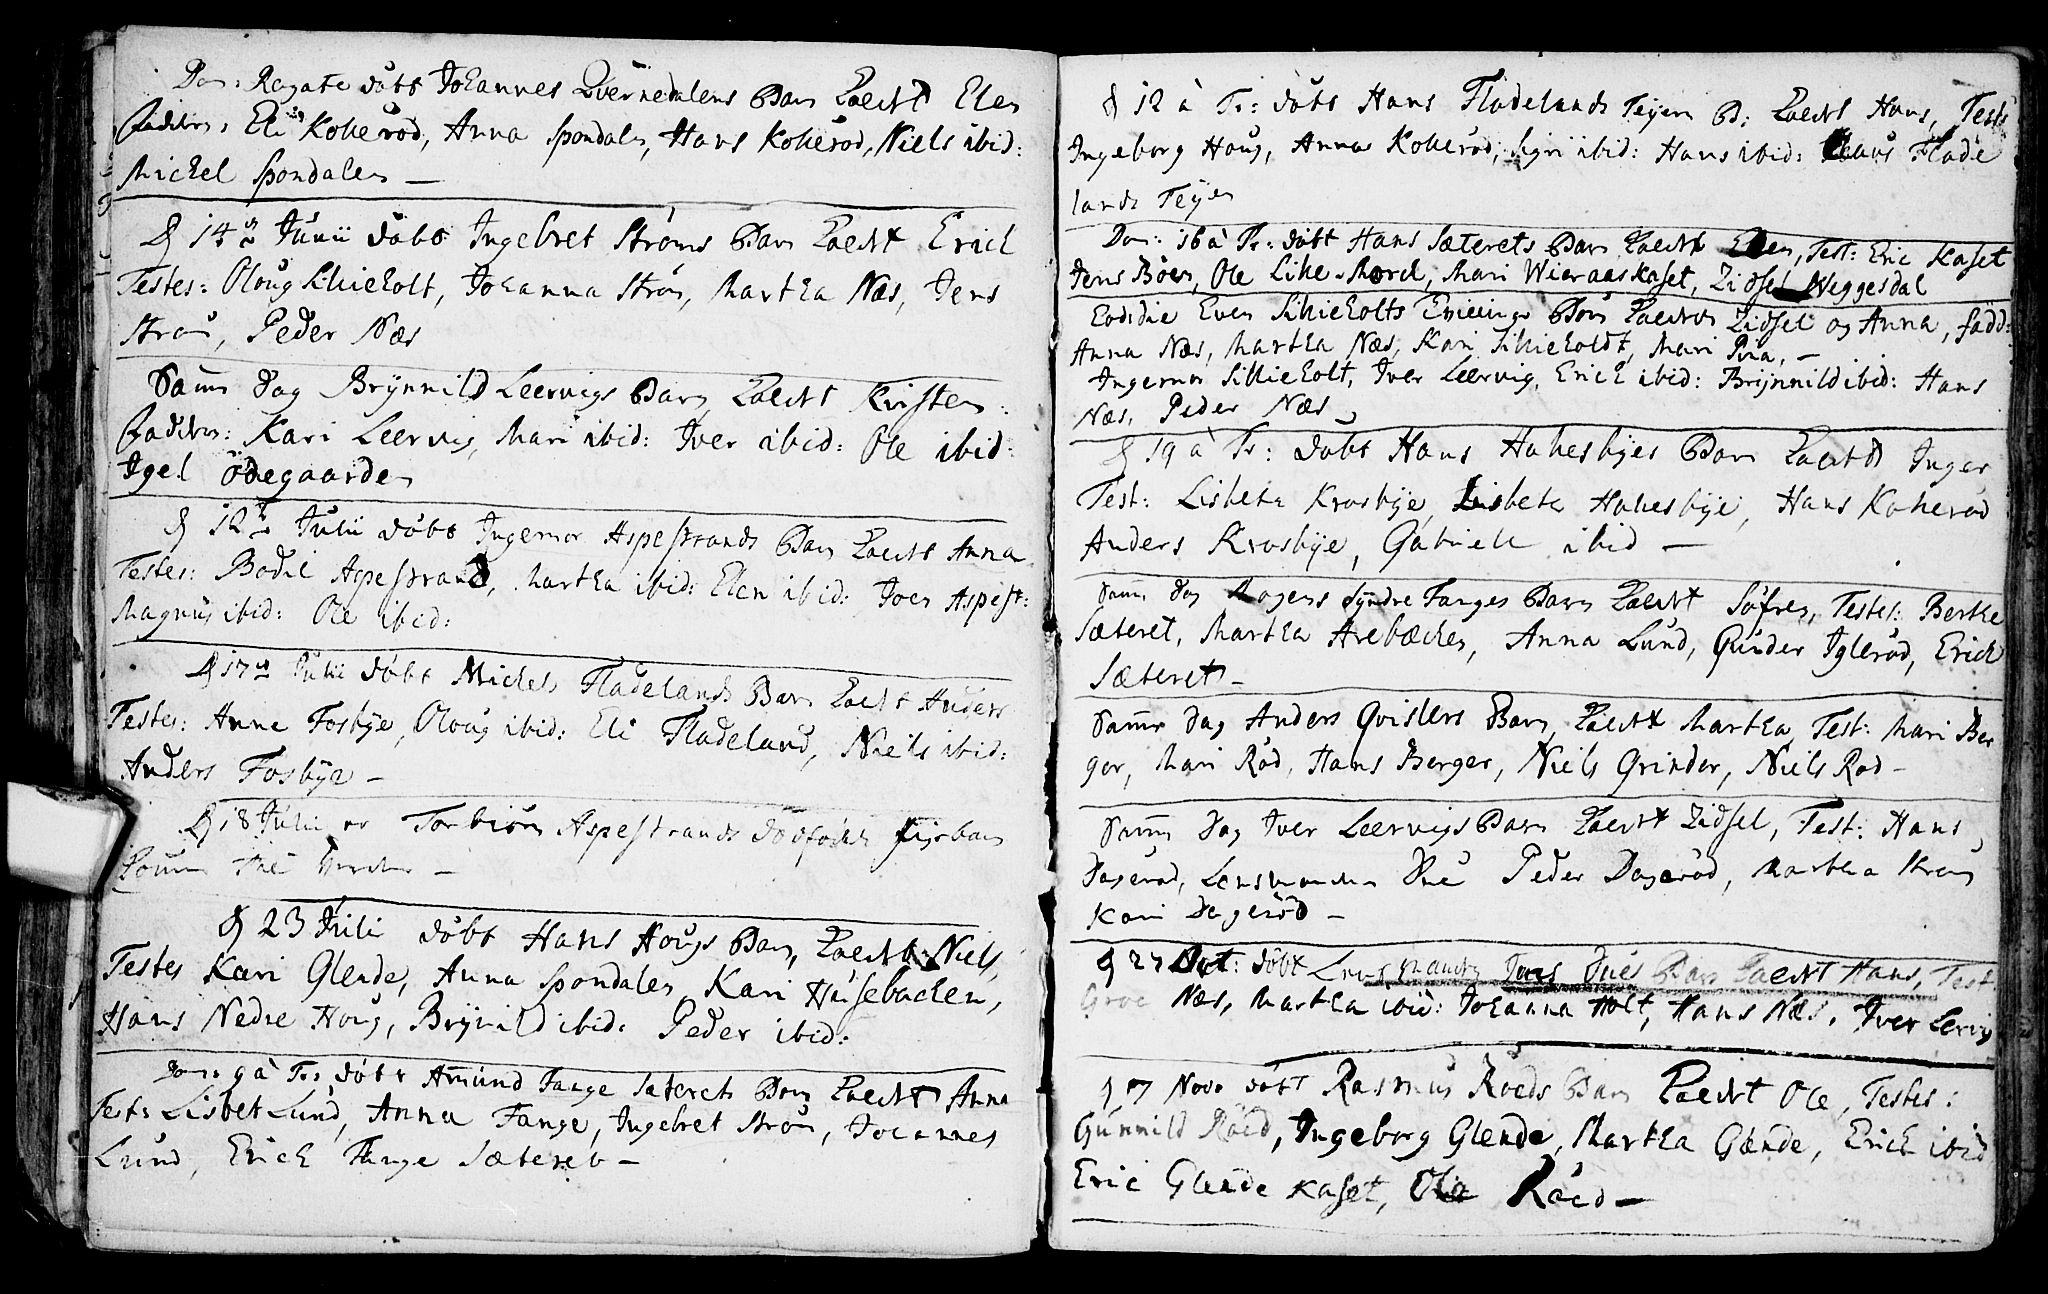 Dom: Rogate döbt Johannes Qvernedalens Barn kaldet Elen
Faddere: Eli Kokeröd, Anna Spondalen, Hans Kokeröd, Niels ibid:
Michel Spondalen —
D 14de Junii döbt Ingebret Ströms Barn kaldet Erich
Testes: Oloug Skieholt, Johanna Ström, Martha Næs, Jens
Ström, Peder Næs
Samme Dag Brÿnnild Leervigs Barn kaldet Kirsten
Faddere: Kari Leervig, Mari ibid: Iver ibid: Ole ibid:
Igel Ödegaarden
D 12te Julii döbt Ingemor Aspestrands Barn kaldet Anna
Testes: Bodil Aspestrand, Martha ibid: Elen ibid: Joen Aspest:
Magnus ibid: Ole ibid:
D 17de Julii döbt Michel Fladelands Barn kaldet Anders
Testes: Anne Fosbÿe, Oloug ibid: Eli Fladeland, Niels ibid:
Anders Fosbÿe —
D 18 Julii er Torbiörn Aspestrands dödfödde
—
D 23 Julii döbt Hans Hougs Barn, kaldet Niels,
Testes Kari Glende, Anna Spondalen, Kari Husebachen,
Hans Nedre Houg, Brÿnild ibid: Peder ibid:
Dom: 9 à Tr: döbt Amund Tange Sæterets Barn kaldet Anna
Test: Lisbet Lund, Anna Tange, Ingebret Ström, Johannes
Lund, Erich Tange Sæteret —
D 12 à Tr: döbt Hans Fladelands Teÿen B: kaldet Hans, Test:
Ingeborg Houg, Anna Kokeröd, Sigri ibid: Hans ibid: Claus Flade
lands Teÿen
Dom: 16 à Tr: döbt Hans Sæterets Barn kaldet Elen, Test: Eric Kaset
Jens Böen, Ole Lihe-Mord, Mari Wieraaskaset, Zidsel Neggesdal
Eodem die Even Skieholts Tvillinge Börn kaldet Zidsel og Anna, fadd:
Anna Næs, Martha Næs, Kari Skieholdt, Mari Pria, —
Ingemor Skieholt, Iver Leervig, Erich ibid: Brÿnnild ibid: Hans
Næs, Peder Næs
D 19 à Tr: döbt Hans Hakesbÿes Barn kaldet Inger
Test: Lisbeth Krosbÿe, Lisbeth Hakesbÿe, Hans Kokeröd
Anders Krosbÿe, Gabriel ibid —
Samme Dag Mogens Sÿndre Tanges Barn kaldet Söfren, Testes: Berthe
Sæteret, Martha Arebæchen, Anna Lund, Gunder Igleröd, Erich
Sæteret —
Samme Dag Anders Qvislers Barn kaldet Martha, Test: Mari Ber
ger, Mari Röd, Hans Berger, Niels Grinder, Niels Röd —
Samme Dag Iver Leervigs Barn kaldet Zidsel, Test: Hans
Dageröd, Lensmanden Due Peder Dageröd, Martha Ström
Kari Dageröd —
D 27 Oct: döbt Lensmanden Jens Dues Barn kaldet Hans, Test:
Groe Næs, Martha ibid: Johanna Holt, Hans Næs, Iver Lervig
D 7 Nov döbt Rasmus Röeds Barn kaldet Ole, Testes:
Gunnild Röed, Ingeborg Glende, Martha Glende, Erich ibid
Eric Glende kaset, Ole Röed —